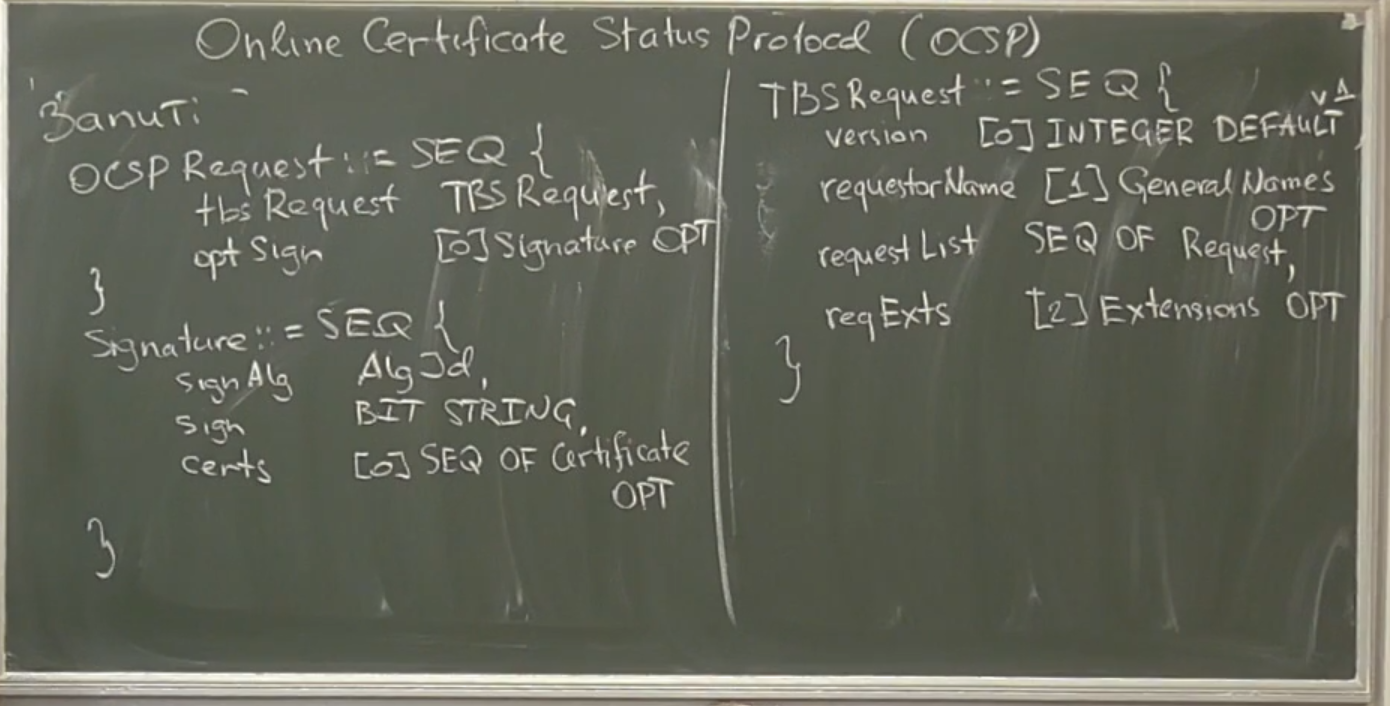 Online Certificate Status Protocol (OCSP)
Запити
OCSP Request ::= SEQ {
tbsRequest TBSRequest,
optSign [0] Signature OPT
}
Signature ::= SEQ {
signAlg AlgId,
sign BIT STRING,
certs [0] SEQ OF Certificate
OPT
}
TBSRequest ::= SEQ {
v1
version [0] INTEGER DEFAULT,
requestorName [1] General Names
OPT
requestList SEQ OF Request,
reqExts [2] Extensions OPT
}